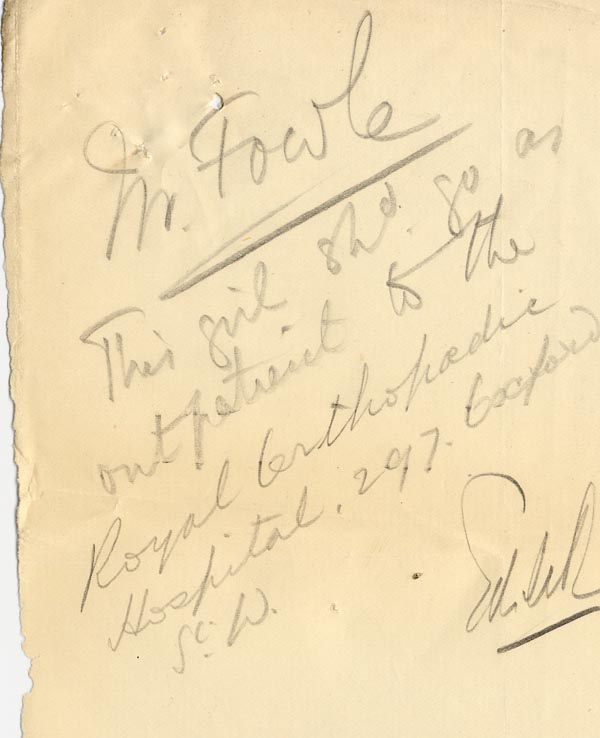 Mr. Fowle
This girl shd. go as
outpatient to the
Royal Orthopædic
Hospital, 297. Oxford
St. W.